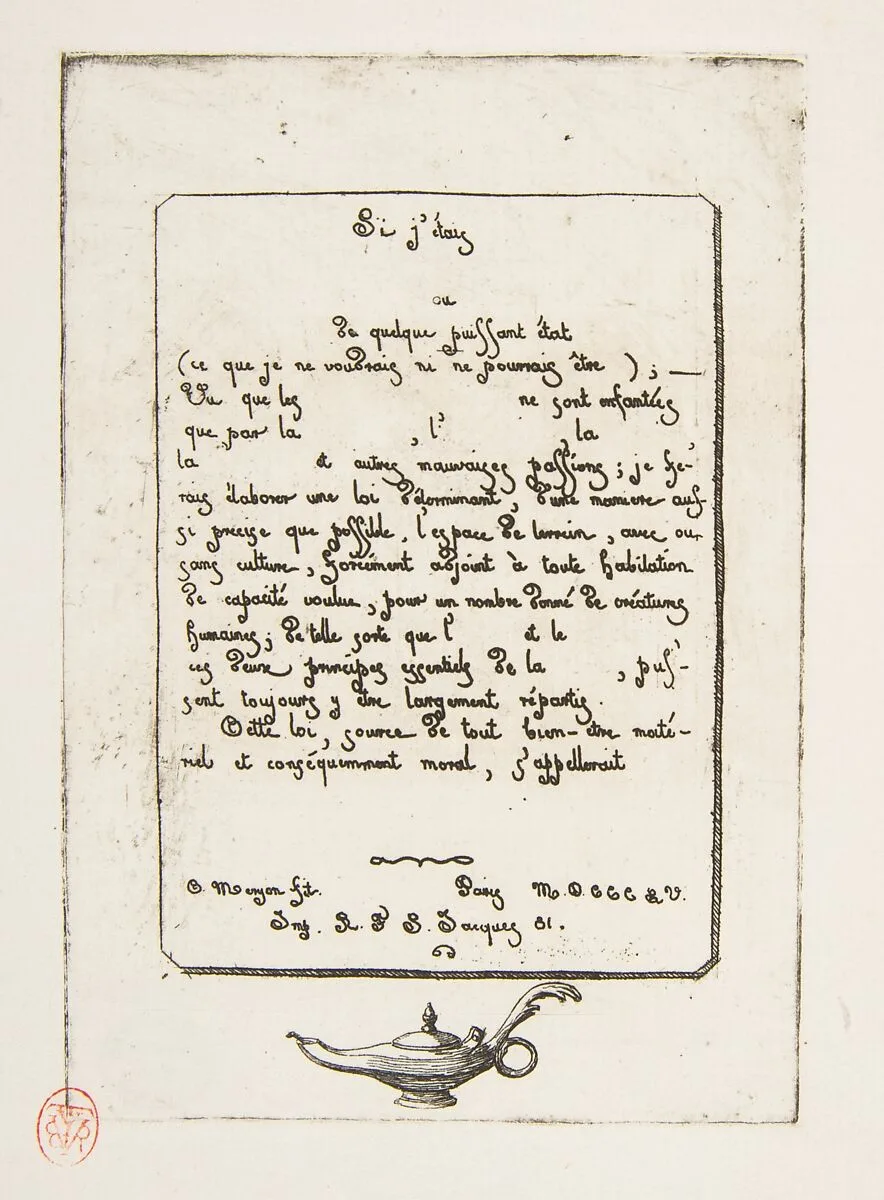 Si j'étais
ou
de quelque puissant état
(ce que je ne voudrais ni ne pourrais être) ; —
Vu que les ne sont enfantées
que par la , l' , la ,
la et autres mauvaises passions ; je fe-
rais élaborer une loi déterminant, d'une manière aus-
si précise que possible, l'espace de terrain, avec ou,
sans culture, forcément adjoint à toute habitation
de capacité voulue, pour un nombre donné de créatures
humaines ; de telle sorte que l' et le
ces deux principes essentiels de la , puis-
sent toujours y être largement répartis.
Cette loi, source de tout bien-être maté-
riel et conséquemment moral, s'appellerait
C. Meryon fit. Paris M.D.CCC LV.
Imp. R. F S. Jacques 81.